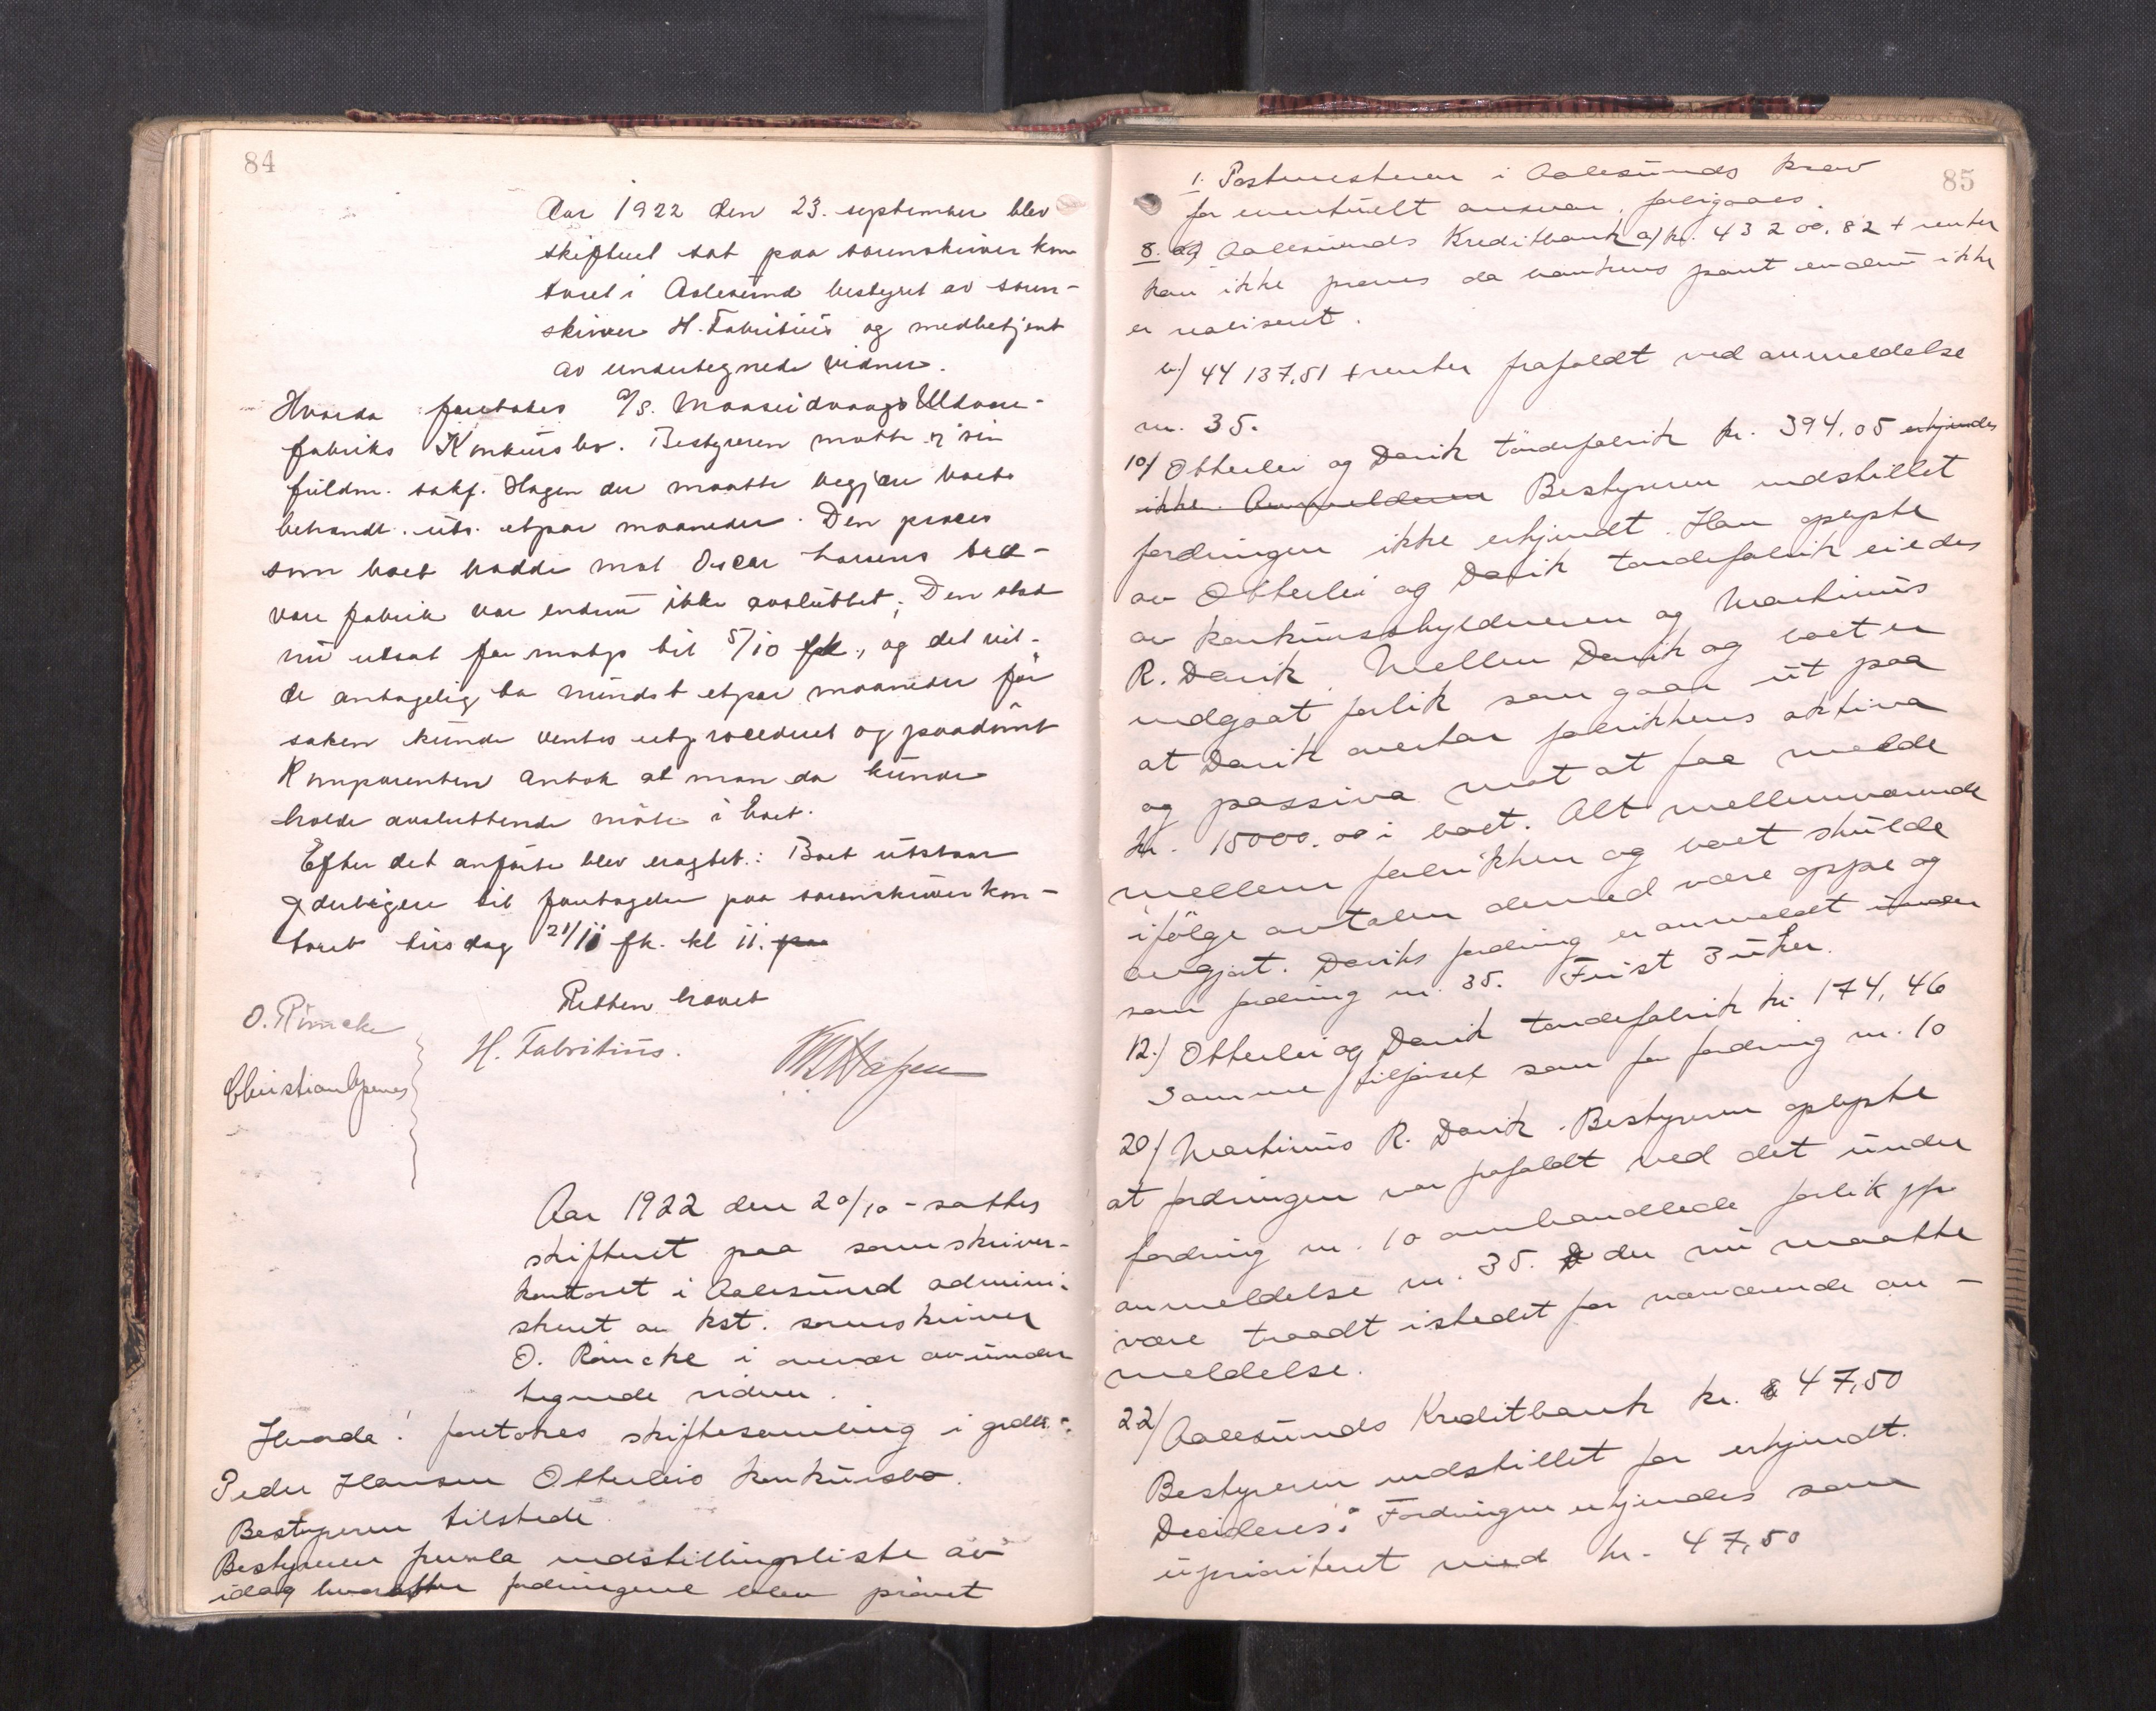 84
Aar 1922 den 23. september blev
skifteret sat paa sorenskriverkon
toret i Aalesund bestyret av soren-
skriver H. Fabritius og medbetjent
av undertegnede vidner.
Hvorda foretokes A/S. Maaseidvaags Uldvare-
fabriks Konkursbo. Bestyreren møtte v/ sin
fuldm. sakf. Hagen der maatte begjære boets
behandl. uts. etpar maaneder. Den proces
som boet hadde mot Oscar Larsens
vare fabrik var endnu ikke avsluttet; Den stod
nu utsat for motp til 5/10 fk., og det vil-
de antagelig ta mindst etpar maaneder før
saken kunde ventes utprocederet og paadømt
Komparenten antok at man da kunde
holde avsluttende møte i boet.
Efter det anførte blev eragtet: Boet utstaar
yderligere til foretagelse paa sorenskriverkon-
toret tirsdag 21/11 fk. kl 11. paa
Retten hævet
O. Rømcke
H. Fabritius.
Hagen
Aar 1922 den 20/10 - sattes
skifteret paa sorenskriver-
kontoret i Aalesund admini-
streret av kst. sorenskriver
O. Rømcke i overvær av under
tegnede vidner.
Hvorda! foretokes skiftesamling i
Peder Hansen Otterleis konkursbo.
Bestyreren tilstede
Bestyreren fremla indstillingsliste av
idag hvorefter fordringene blev prøvet
85
1. Postmesteren i Aalesunds krav
for eventuelt ansvar, forbigaaes.
8. Aalesunds Kreditbank a) kr. 43 200.82 + renter
kan ikke prøves da bankens pant endnu ikke
er realiseret.
b.) 44 137,51 + renter frafaldt ved anmeldelse
nr. 35.
10) Otterlei og Davik tøndefabrik kr. 394,05 erkjendes
ikke. Anmelderen Bestyreren indstillet
fordringen ikke erkjendt. Han oplyste
av Otterlei og Davik tøndefabrik eiedes
av konkursskyldneren og Martinus
R. Davik. Mellem Davik og boet er
indgaat forlik som gaar ut paa
at Davik overtar fabrikkens aktiva
og passiva mot at faa melde
kr. 15000.00 i boet. Alt mellemværende
mellem fabrikken og boet skulde
ifølge avtalen dermed være oppe og
avgjort. Daviks fordring er anmeldt under
som fordring nr. 35. Frist 3 uker.
12.) Otterlei og Davik tøndefabrik kr. 174,46
Samme tilføisel som for fordring nr. 10
20) Martinus R. Davik. Bestyreren oplyste
at fordringen var frafaldt ved det under
fordring nr. 10 omhandlede forlik jfr
anmeldelse nr. 35. der nu maatte
være traadt istedet for nærværende an-
meldelse.
22) Aalesunds Kreditbank kr. 47,50
Bestyreren indstillet for erkjendt.
Decideres: Fordringen erkjendes som
uprioriteret med kr. 47,50